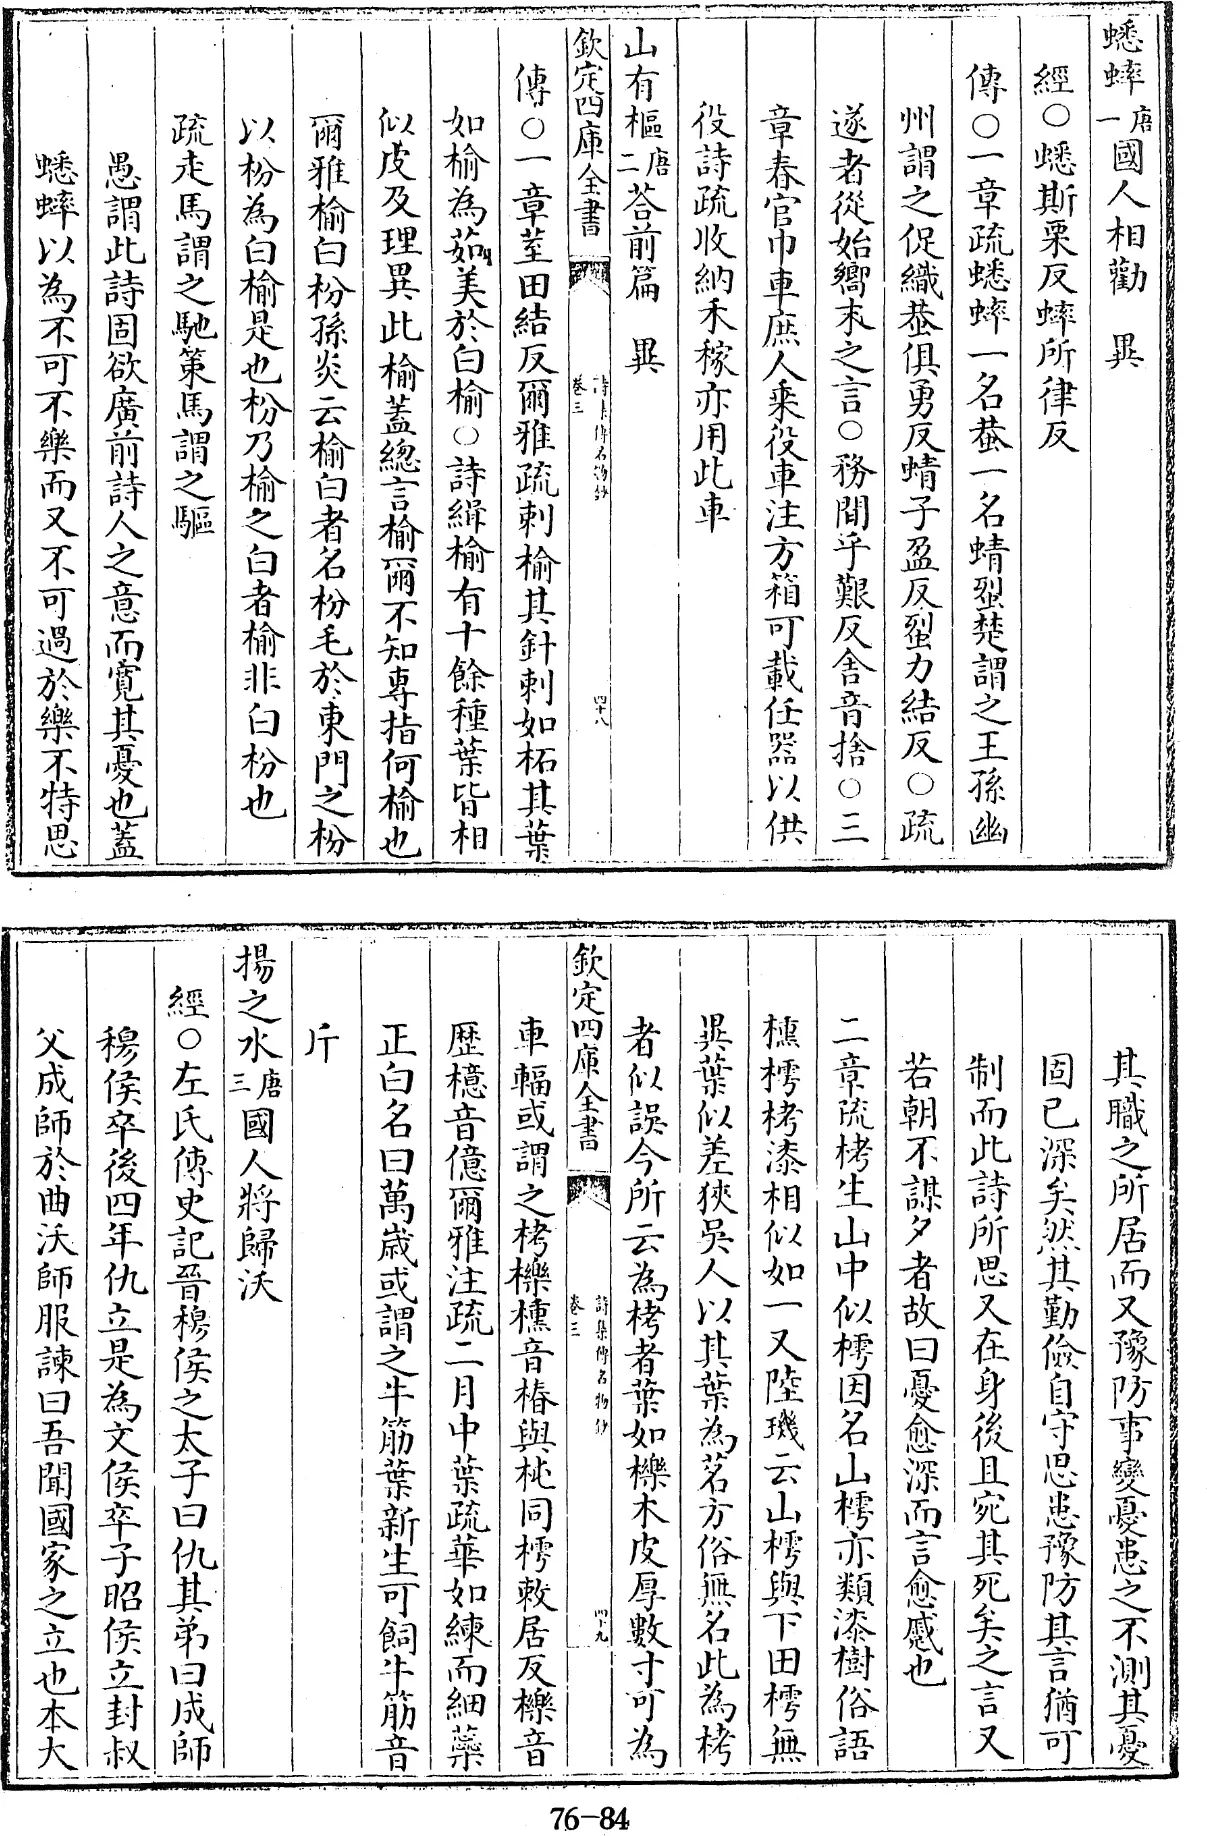 蟋蟀唐一國人相勸　異
經○蟋斯栗反蟀所律反
傳○一章疏蟋蟀一名蛬一名蜻蛚楚謂之王孫幽
州謂之促織蛬俱勇反蜻子盈反蛚力結反○疏
遂者從始嚮末之言○務間乎艱反舍音捨○三
章春官巾車庶人乗役車注方箱可載任器以供
役詩疏收納禾稼亦用此車
山有樞唐二荅前篇　異
欽定四庫全書　詩集傳名物鈔　卷三　四十八
傳○一章荎田結反爾雅疏刺榆其針刺如柘其葉
如榆為茹美於白榆○詩緝榆有十餘種葉皆相
似皮及理異此榆蓋總言榆爾不知專指何榆也
爾雅榆白枌孫炎云榆白者名枌毛於東門之枌
以枌為白榆是也枌乃榆之白者榆非白枌也
疏走馬謂之馳策馬謂之驅
愚謂此詩固欲廣前詩人之意而寛其憂也蓋
蟋蟀以為不可不樂而又不可過於樂不特思
其職之所居而又豫防事變憂患之不測其憂
固已深矣然其勤儉自守思患豫防其言猶可
制而此詩所思又在身後且宛其死矣之言又
若朝不謀夕者故曰憂愈深而言愈慼也
二章疏栲生山中似樗因名山樗亦類漆樹俗語
櫄樗栲漆相似如一又陸璣云山樗與下田樗無
異葉似差狹吳人以其葉為茗方俗無名此為栲
者似誤今所云為栲者葉如櫟木皮厚數寸可為
欽定四庫全書　詩集傳名物鈔　卷三　四十九
車輻或謂之栲櫟櫄音椿與杶同樗敕居反櫟音
歴檍音億爾雅注疏二月中葉疏華如練而細蘂
正白名曰萬歳或謂之牛筋葉新生可飼牛筋音
斤
揚之水唐三國人將歸沃
經○左氏傳史記晉穆侯之太子曰仇其弟曰成師
穆侯卒後四年仇立是為文侯卒子昭侯立封叔
父成師於曲沃師服諫曰吾聞國家之立也本大
76-84